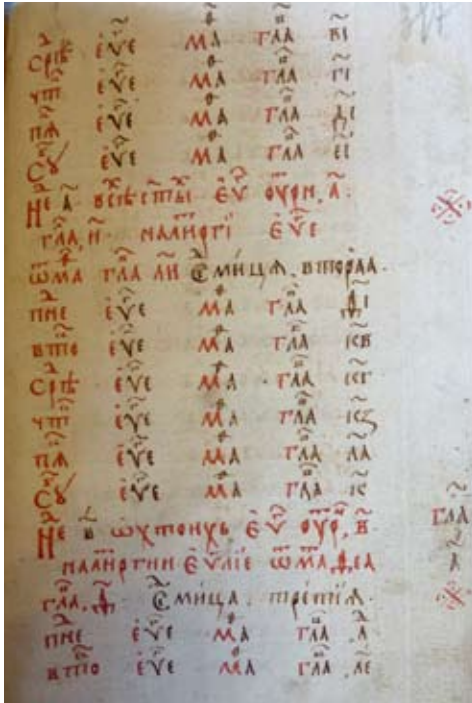 Срⷣѣ еѵⷢе маⷴ глⷡа в҃і
чтⷡ еѵⷢе маⷴ глⷡа г҃і
пѧⷦ еѵⷢе маⷴ глⷡа д҃і
Сⷠꙋ еѵⷢе маⷴ глⷡа е҃і
Нⷣе а҃ всѣⷯ ст҃ыⷯ еѵⷢ ѹтⷬни, а҃.
глⷡа, и҃. на лиⷮргі еѵⷢе
ѿ маⷴ глⷡа л҃и Сⷣмица втораа.
пнⷣе еѵⷢе маⷴ глⷡа д҃і
втⷪ еѵⷢе маⷴ глⷡа к҃в
Срⷣѣ еѵⷢе маⷴ глⷡа к҃г
чтⷡ еѵⷢе маⷴ глⷡа к҃ꙁ
пѧⷦ еѵⷢе маⷴ глⷡа л҃а
Сⷠꙋ еѵⷢе маⷴ глⷡа к҃
Нⷣе в҃ ѡхтоихь еѵⷢ ѹтⷬ, в҃
на лиⷮргии еѵⷢліе ѿ маⷴдеа
глⷡа, д҃. Сⷣмица. третиꙗ.
пнⷣе еѵⷢе маⷴ глⷡа
втⷪ еѵⷢе маⷴ глⷡа л҃е
глⷡа
а҃